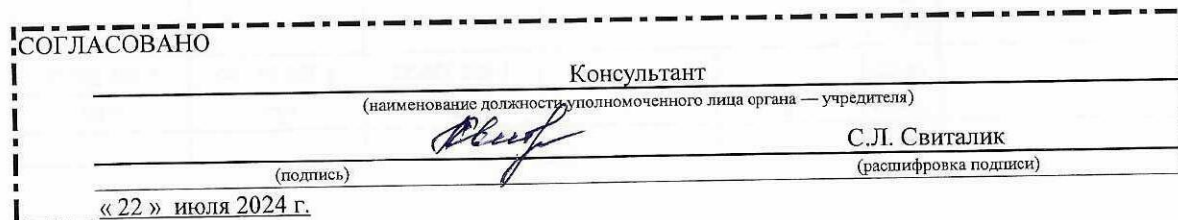 СОГЛАСОВАНО
Консультант
(наименование должности уполномоченного лица органа — учредителя)
С.Л. Свиталик
(подпись) (расшифровка подписи)
« 22 » июля 2024 г.